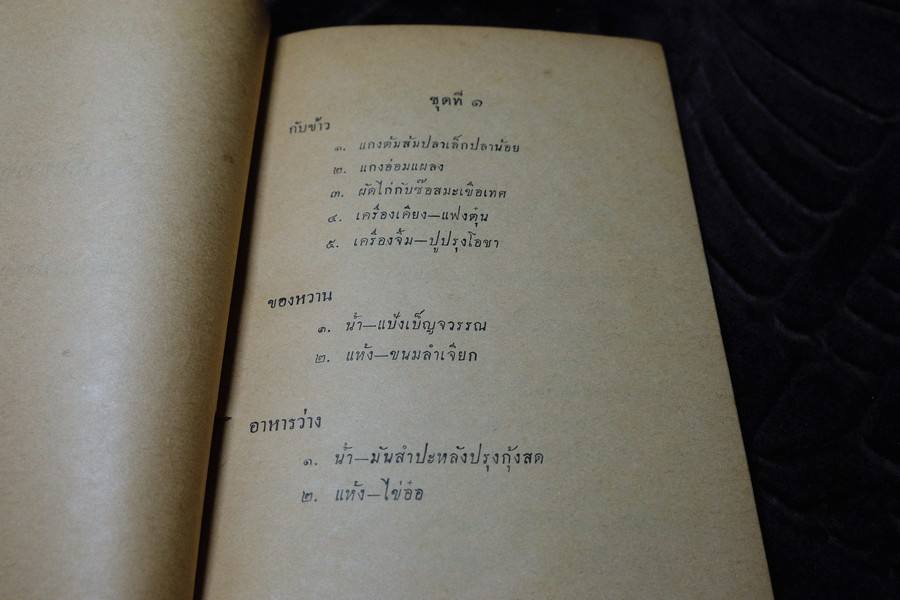 ชุดที่ ๑
กับข้าว
๑. แกงต้มส้มปลาเล็กปลาน้อย
๒. แกงอ่อมแผลง
๓. ผัดไก่กับซ๊อสมะเขือเทศ
๔. เครื่องเคียง—แฟงตุ๋น
๕. เครื่องจิ้ม—ปูปรุงโอชา
ของหวาน
๑. น้ำ—แป้งเบ็ญจวรรณ
๒. แห้ง—ขนมลำเจียก
อาหารว่าง
๑. น้ำ—มันสำปะหลังปรุงกุ้งสด
๒. แห้ง—ไข่อ๋อ